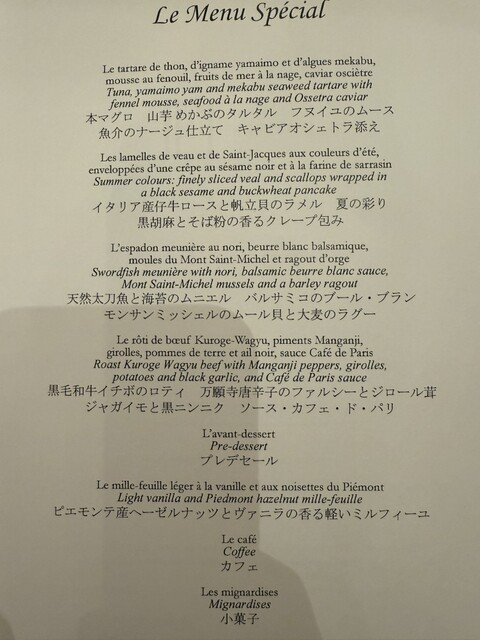 Le Menu Spécial
Le tartare de thon, d'igname yamaimo et d'algues mekabu,
mousse au fenouil, fruits de mer à la nage, caviar osciètre
Tuna, yamaimo yam and mekabu seaweed tartare with
fennel mousse, seafood à la nage and Ossetra caviar
本マグロ　山芋 めかぶのタルタル　フヌイユのムース
魚介のナージュ仕立て　キャビアオシェトラ添え
Les lamelles de veau et de Saint-Jacques aux couleurs d'été,
enveloppées d'une crêpe au sésame noir et à la farine de sarrasin
Summer colours: finely sliced veal and scallops wrapped in
a black sesame and buckwheat pancake
イタリア産仔牛ロースと帆立貝のラメル　夏の彩り
黒胡麻とそば粉の香るクレープ包み
L'espadon meunière au nori, beurre blanc balsamique,
moules du Mont Saint-Michel et ragout d'orge
Swordfish meunière with nori, balsamic beurre blanc sauce,
Mont Saint-Michel mussels and a barley ragout
天然太刀魚と海苔のムニエル　バルサミコのブール・ブラン
モンサンミッシェルのムール貝と大麦のラグー
Le rôti de bœuf Kuroge-Wagyu, piments Manganji,
girolles, pommes de terre et ail noir, sauce Café de Paris
Roast Kuroge Wagyu beef with Manganji peppers, girolles,
potatoes and black garlic, and Café de Paris sauce
黒毛和牛イチボのロティ　万願寺唐辛子のファルシーとジロール茸
ジャガイモと黒ニンニク　ソース・カフェ・ド・パリ
L'avant-dessert
Pre-dessert
プレデセール
Le mille-feuille léger à la vanille et aux noisettes du Piémont
Light vanilla and Piedmont hazelnut mille-feuille
ピエモンテ産ヘーゼルナッツとヴァニラの香る軽いミルフィーユ
Le café
Coffee
カフェ
Les mignardises
Mignardises
小菓子